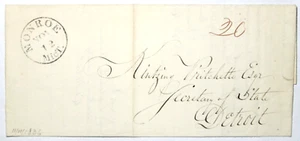 MONROE
NOV
12
MICT.
20
Kintzing Pritchette Esqr
Secretary of State
Detroit